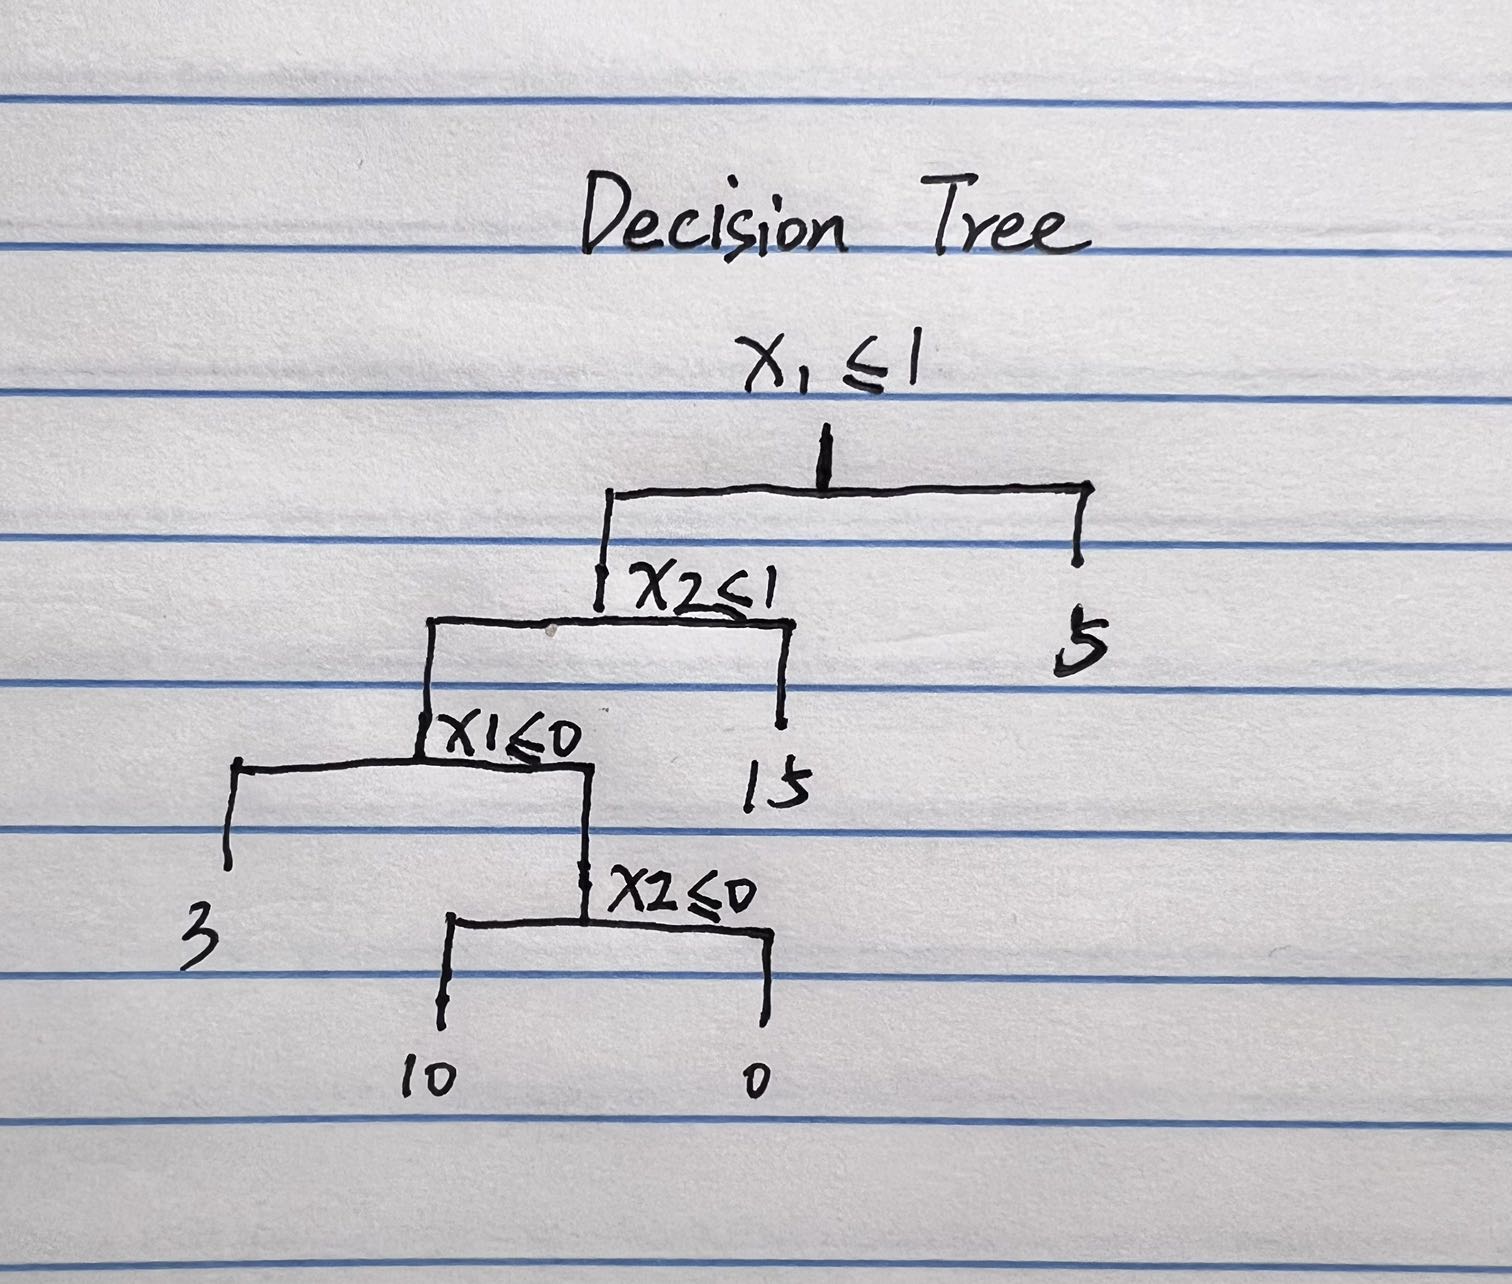 Decision Tree
X₁ ≤ 1
X2 ≤ 1
5
X1 ≤ 0
15
X2 ≤ 0
3
10 0